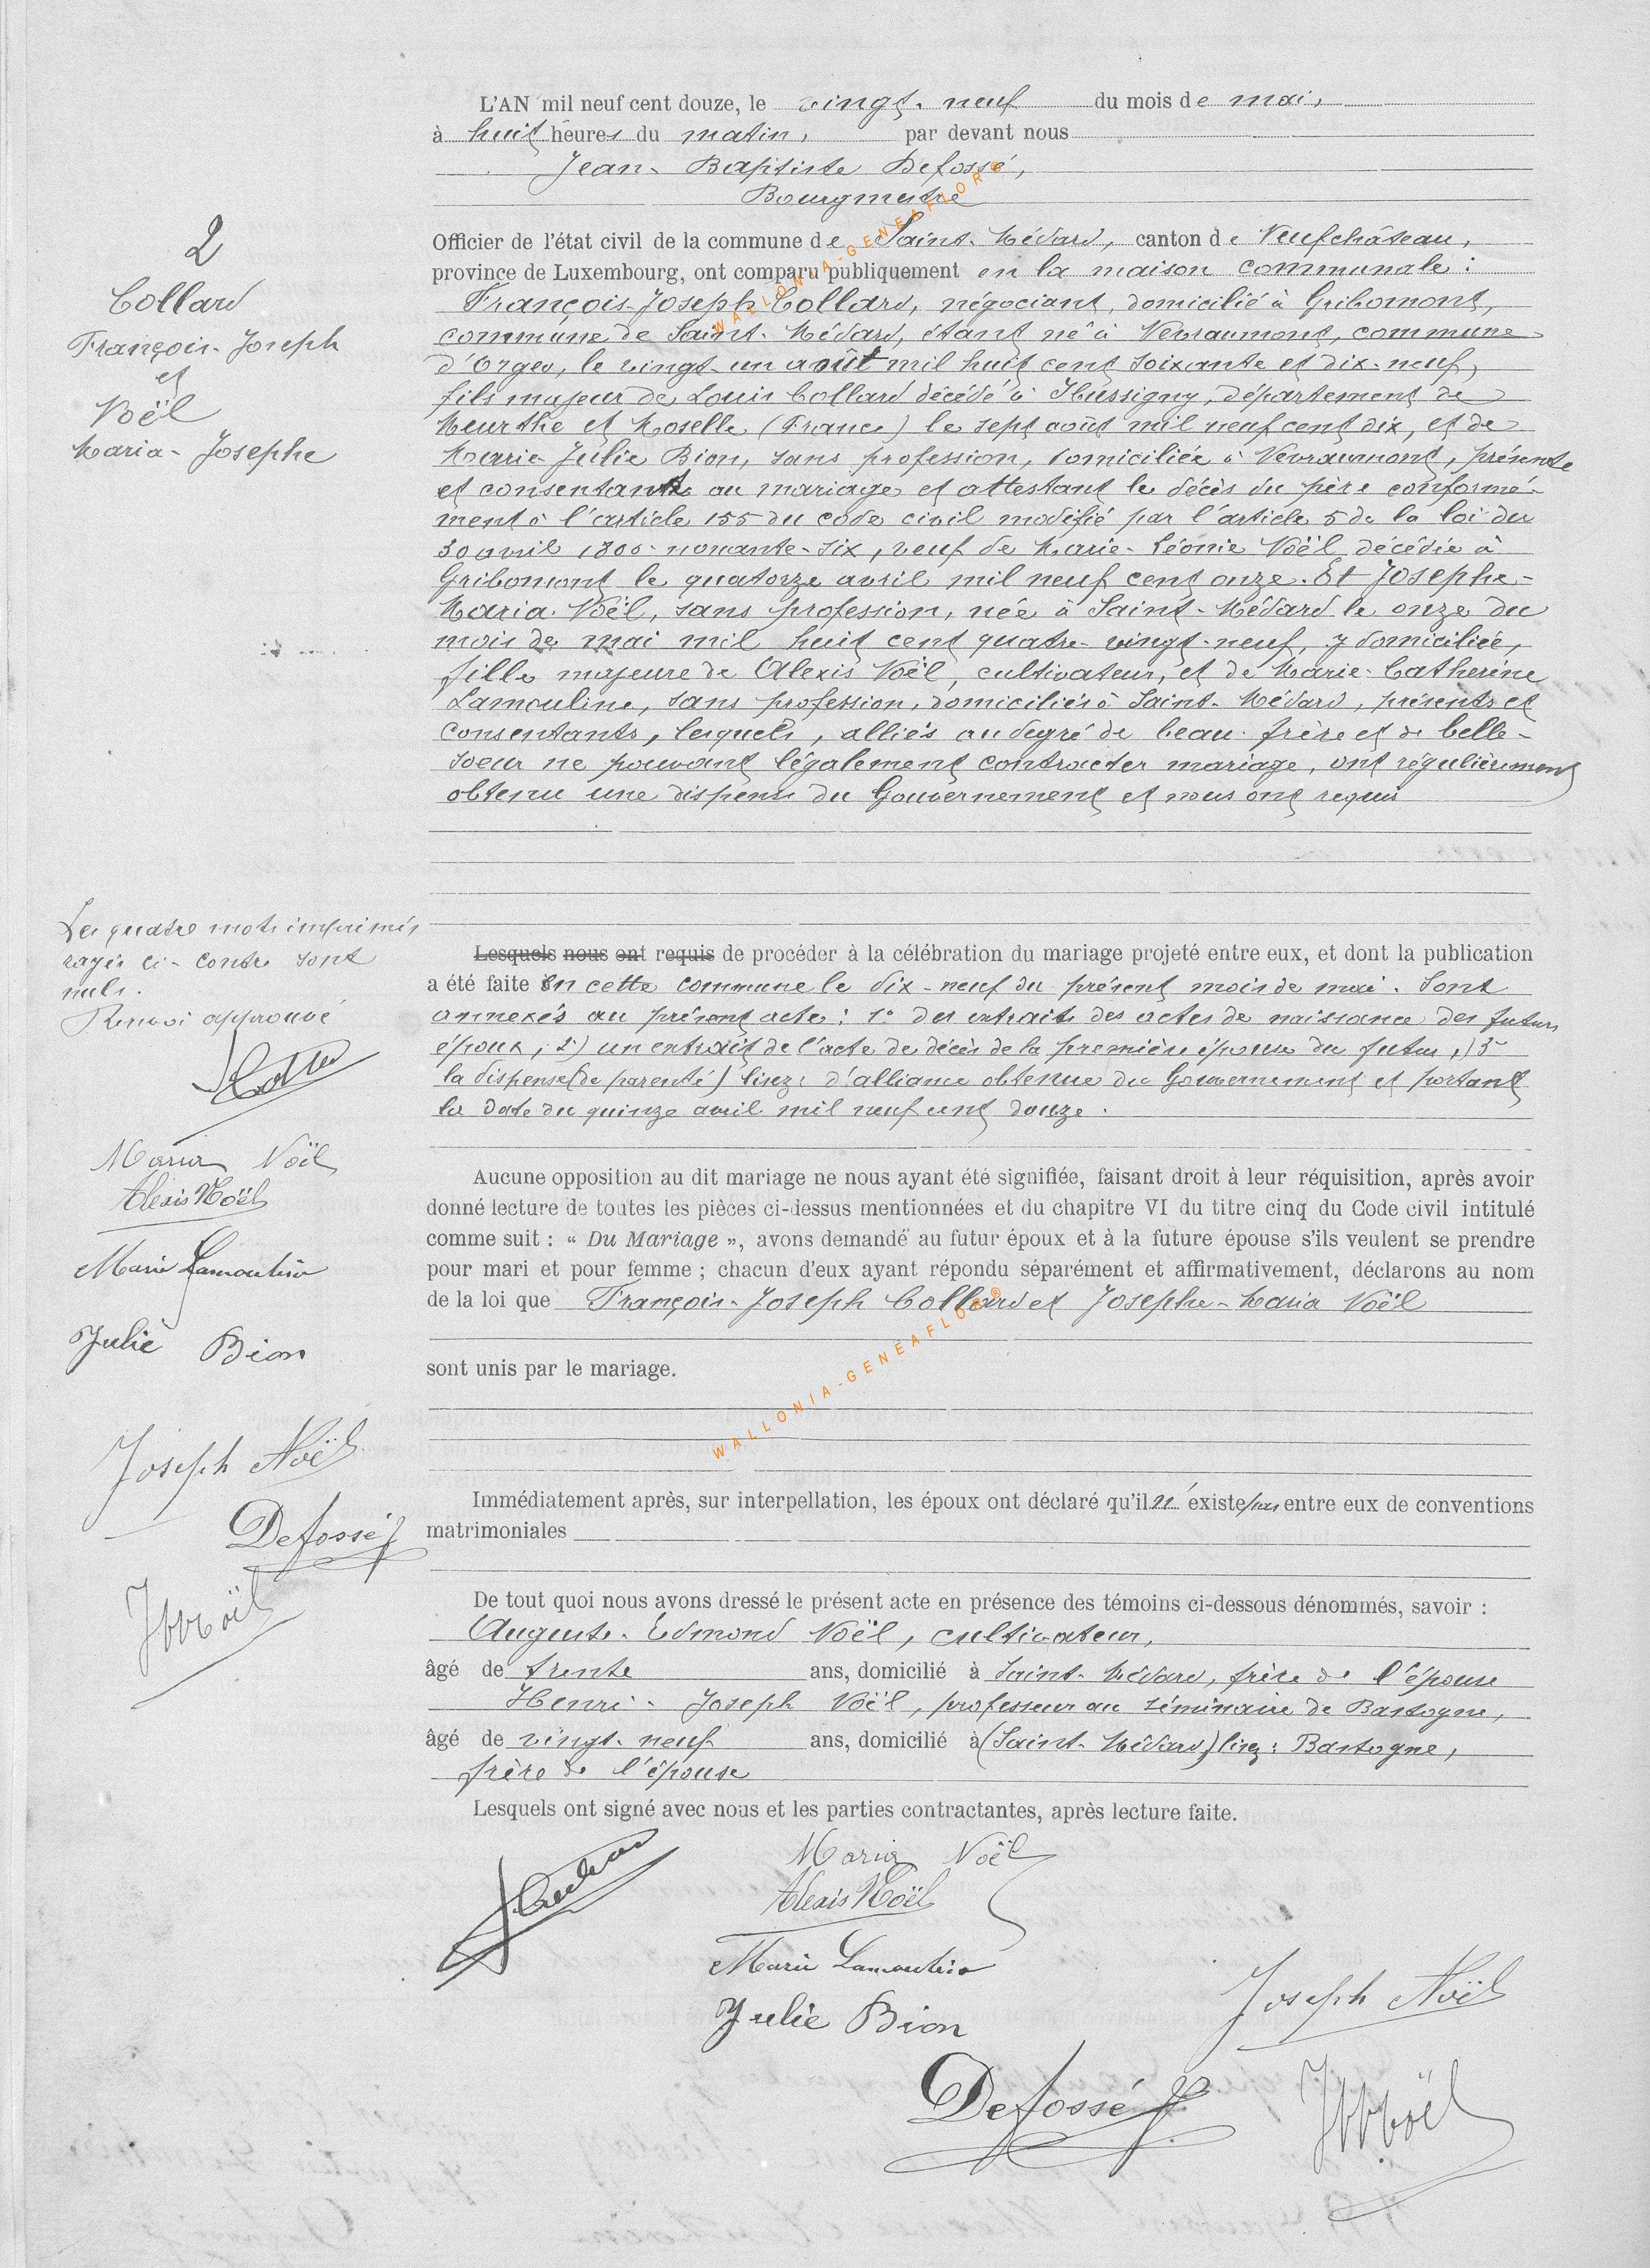 L'AN mil neuf cent douze, le vingt-neuf du mois de mai,
à huit heures du matin, par devant nous
Jean-Baptiste Defossé,
Bourgmestre
Officier de l'état civil de la commune de Saint-Médard, canton de Neufchâteau,
province de Luxembourg, ont comparu publiquement en la maison communale :
François-Joseph Collard, négociant, domicilié à Gribomont,
commune de Saint-Médard, étant né à Nevraumont, commune
d'Orgeo, le vingt-un août mil huit cent soixante et dix-neuf,
fils majeur de Louis Collard décédé à Hussigny, département de
Meurthe et Moselle (France) le sept août mil neuf cent dix, et de
Marie Julie Bion, sans profession, domiciliée à Nevraumont, présente
et consentante au mariage et attestant le décès du père conformé-
ment à l'article 155 du code civil modifié par l'article 5 de la loi du
30 avril 1800-nonante-six, veuf de Marie-Léonie Noël décédée à
Gribomont le quatorze avril mil neuf cent onze. Et Josephe-
Maria Noël, sans profession, née à Saint-Médard le onze du
mois de mai mil huit cent quatre-vingt-neuf, y domiciliée,
fille majeure de Alexis Noël, cultivateur, et de Marie-Catherine
Lamouline, sans profession, domiciliés à Saint-Médard, présents et
consentants, lesquels, alliés au degré de beau-frère et de belle-
soeur ne pouvant légalement contracter mariage, ont régulièrement
obtenu une dispense du Gouvernement et nous ont requis
Lesquels nous ont requis de procéder à la célébration du mariage projeté entre eux, et dont la publication
a été faite en cette commune le dix-neuf du présent mois de mai. Sont
annexés au présent acte : 1° des extraits des actes de naissance des futurs
époux ; 2) un extrait de l'acte de décès de la première épouse du futur ; 3°
la dispense (de parenté) lisez : d'alliance obtenue du Gouvernement et portant
la date du quinze avril mil neuf cent douze.
Aucune opposition au dit mariage ne nous ayant été signifiée, faisant droit à leur réquisition, après avoir
donné lecture de toutes les pièces ci-dessus mentionnées et du chapitre VI du titre cinq du Code civil intitulé
comme suit : « Du Mariage », avons demandé au futur époux et à la future épouse s'ils veulent se prendre
pour mari et pour femme ; chacun d'eux ayant répondu séparément et affirmativement, déclarons au nom
de la loi que François-Joseph Collard et Josephe-Maria Noël
sont unis par le mariage.
Immédiatement après, sur interpellation, les époux ont déclaré qu'il n'existe pas entre eux de conventions
matrimoniales
De tout quoi nous avons dressé le présent acte en présence des témoins ci-dessous dénommés, savoir :
Auguste-Edmond Noël, cultivateur,
âgé de trente ans, domicilié à Saint-Médard, frère de l'épouse
Henri-Joseph Noël, professeur au séminaire de Bastogne,
âgé de vingt-neuf ans, domicilié à (Saint-Médard) lisez : Bastogne,
frère de l'épouse
Lesquels ont signé avec nous et les parties contractantes, après lecture faite.
Maria Noël
Alexis Noël
Marie Lamouline
Julie Bion
Joseph Noël
Defossé
2
Collard
François-Joseph
et
Noël
Maria-Josephe
Les quatre mots imprimés
rayés ci-contre sont
nuls.
Renvoi approuvé
Maria Noël
Alexis Noël
Marie Lamouline
Julie Bion
Joseph Noël
Defossé
WALLONIA-GENEAFLORE
WALLONIA-GENEAFLORE